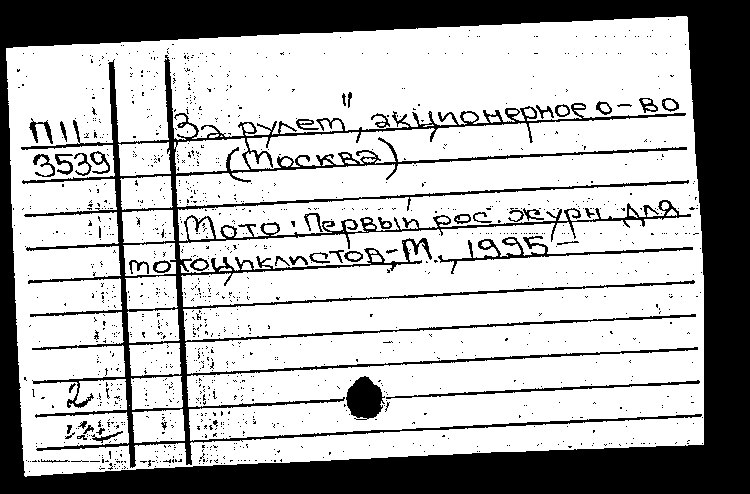 П11
3539
За рулем", акционерное о-во
(Москва)
Мото: Первый рос. журн. для
мотоциклистов,-М., 1995-
2